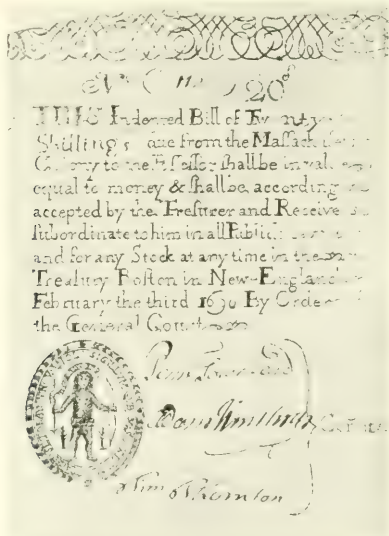 No 20s
THIS Indented Bill of Twenty
Shillings due from the Massach
Colony to the Possessor shall be in value
equal to money & shall be according
accepted by the Tresurer and Receive
subordinate to him in all Public
and for any Stock at any time in the
Treasury Boston in New-England
February the third 1690 By Order
the General Court
Penn Townsend
Adam Winthrop
Tim Thornton